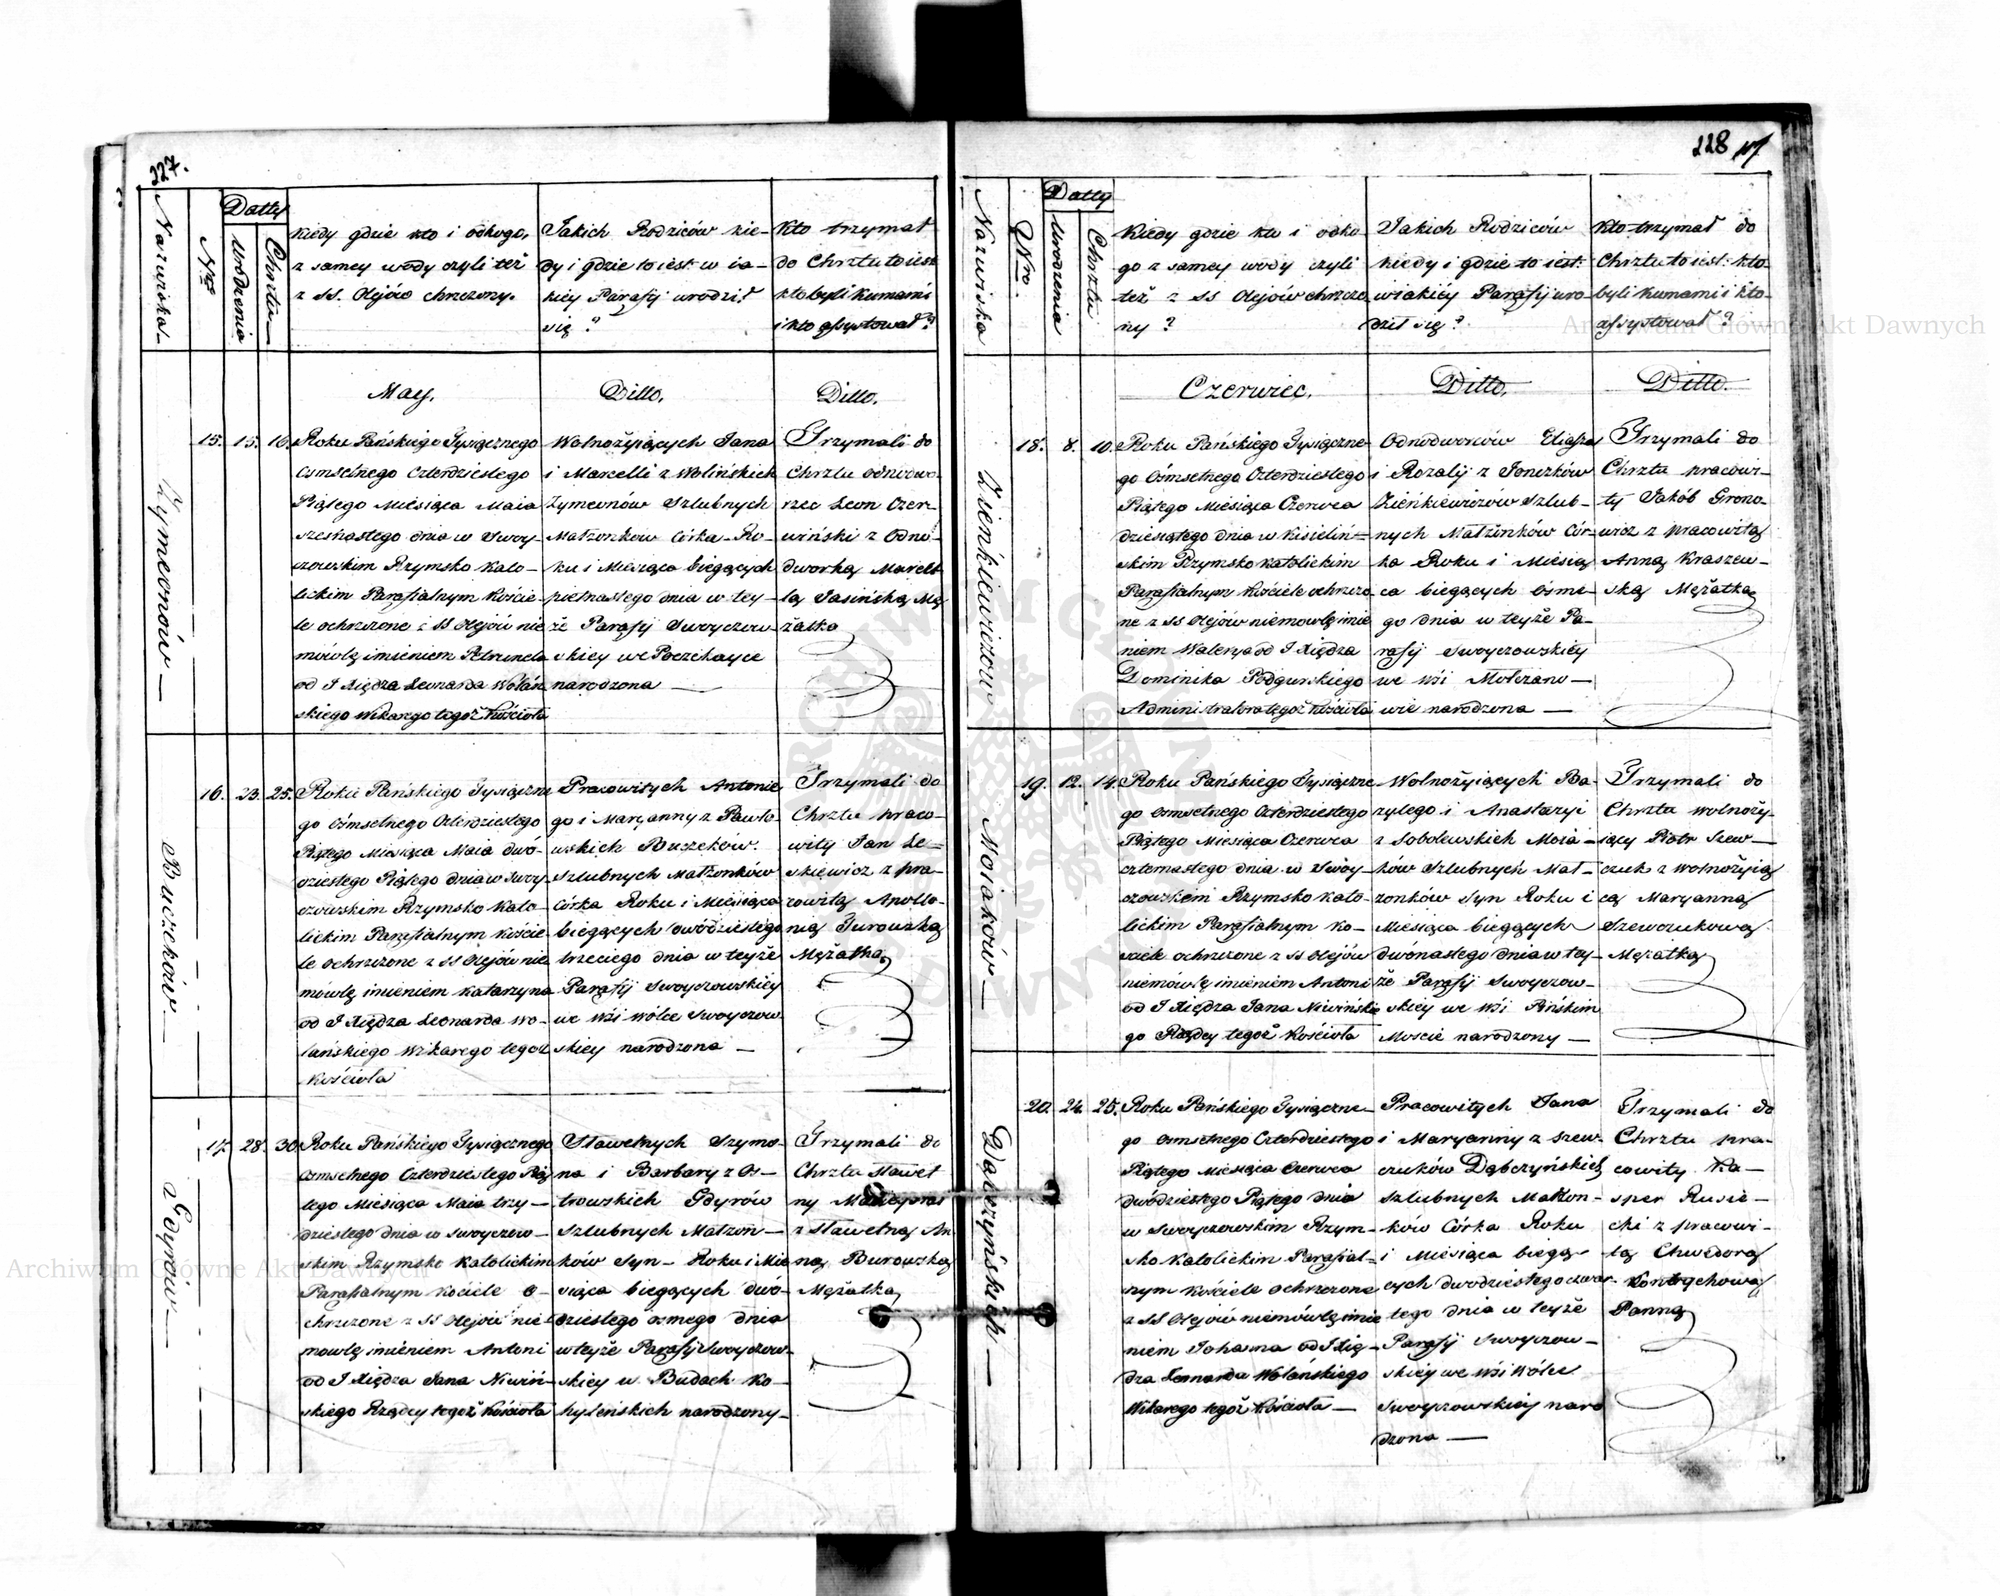 227.
Nazwiska
Nro
Datty
Urodzenia
Chrztu
Kiedy gdzie kto i odkogo,
z samey wody czyli też
z SS. Olejów chrzczony.
Jakich Rodziców kie-
dy i gdzie to iest w ia-
kiey Parafij urodził
się ?
Kto trzymał
do Chrztu to iest
kto byli kumami
i kto assystował ?
May.
Ditto.
Ditto.
Zymeonów
15. 15. 16.
Roku Pańskiego Tysiącznego
Osmsetnego Czterdziestego
Piątego Miesiąca Maia
szesnastego dnia w Swoy-
czowskim Rzymsko Kato-
lickim Parafialnym Koście-
le ochrzczone z SS Olejów nie
mówlę imieniem Petrunela
od J Xiędza Leonarda Wołań
skiego Wikarego tegoż Kościoła
Wolnożyiących Jana
i Marcelli z Wolińskich
Zymeonów Szlubnych
Małżonków Córka Ro-
ku i Miesiąca bieżących
pietnastego dnia w tey-
że Parafij Swoyczow-
skiey we Poczekayce
narodzona
Trzymali do
Chrztu odnodwo-
rzec Leon Czer-
wiński z Odno-
dworką Marcel
lą Jasińską Mę
żatką
Buczków
16. 23. 25.
Roku Pańskiego Tysiączne
go Osmsetnego Czterdziestego
Piątego Miesiąca Maia dwó-
dziestego Piątego dnia w Swoy-
czowskim Rzymsko Kato-
lickim Parafialnym Koście
le ochrzczone z SS Olejów nie
mówlę imieniem Katarzyna
od J Xiędza Leonarda Wo-
łańskiego Wikarego tegoż
Kościoła
Pracowitych Antonie
go i Maryanny z Pawło-
wskich Buczków
Szlubnych Małżonków
Córka Roku i Miesiąca
bieżących dwódziestego
trzeciego dnia w teyże
Parafij Swoyczowskiey
we Wsi Wólce Swoyczow
skiey narodzona
Trzymali do
Chrztu praco-
wity Jan Le=
skiewicz z pra-
cowitą Apollo-
nią Turowską
Mężatką
Gdyrów
17. 28. 30.
Roku Pańskiego Tysiącznego
Osmsetnego Czterdziestego Pią
tego Miesiąca Maia trzy-
dziestego dnia w Swoyczow-
skim Rzymsko Katolickim
Parafialnym Kociele o-
chrzczone z SS Olejów nie-
mówlę imieniem Antoni
od J Xiędza Jana Niwiń-
skiego Rządcy tegoż Kościoła
Sławetnych Szymo-
na i Barbary z Os-
trowskich Gdyrów
Szlubnych Małżon-
ków Syn Roku i Mie
siąca bieżących dwó-
dziestego osmego dnia
w teyże Parafij Swoyczow-
skiey w Budach Ko-
hyleńskich narodzony
Trzymali do
Chrztu Sławet
ny
z Sławetną An
ną Burowską
Mężatką
228
Nazwiska
Nro.
Datty
Urodzenia
Chrztu
Kiedy gdzie kto i odko
go z samey wody czyli
też z SS Olejów chrzczo
ny ?
Jakich Rodziców
kiedy i gdzie to iest.
w iakiéy Parafij uro-
dził się ?
Kto trzymał do
Chrztu to iest: kto-
byli kumami i kto-
assystował ?
Czerwiec.
Ditto.
Ditto.
Zieńkiewiczów
18. 8. 10.
Roku Pańskiego Tysiączne-
go Ośmsetnego Czterdziestego
Piątego Miesiąca Czerwca
dziesiątego dnia w Kisieliń=
skim Rzymsko Katolickim
Parafialnym Kościele ochrzczo
ne z SS Olejów niemowlę imie
niem Walerya od J Xiędza
Dominika Podgurskiego
Administratora tegoż Kościoła
Odnodworców Eliasza
i Rozalij z Jonczków
Zieńkiewiczów Szlub-
nych Małżonków Cór-
ka Roku i Miesią
ca bieżących ósme-
go dnia w teyże Pa-
rafij Swoyczowskiey
we Wsi Mołczano-
wie narodzona
Trzymali do
Chrztu pracowi-
ty Jakób Grono-
wicz z pracowitą
Anną Kraszew-
ską Mężatką
Mosiaków
19. 12. 14.
Roku Pańskiego Tysiączne-
go osmsetnego Czterdziestego
Piątego Miesiąca Czerwca
czternastego dnia w Swoy-
czowskim Rzymsko Kato-
lickim Parafialnym Ko-
ściele ochrzczone z SS Olejów
niemówlę imieniem Antoni
od J Xiędza Jana Niwińskie
go Rządcy tegoż Kościoła
Wolnożyiących Ba-
zylego i Anastazyi
z Sobolewskich Mosia-
ków Szlubnych Mał-
żonków Syn Roku i
Miesiąca bieżących
dwónastego dnia w tey-
że Parafij Swoyczow-
skiey we Wsi Pińskim
Moscie narodzony
Trzymali do
Chrztu wolnoży-
iący Piotr Szew-
czuk z wolnożyią
cą Maryanną
Szewczukową
Mężatką
Dabczyńskich
20. 24. 25.
Roku Pańskiego Tysiączne-
go osmsetnego Czterdziestego
Piątego Miesiąca Czerwca
dwódziestego Piątego dnia
w Swoyczowskim Rzym-
sko Katolickim Parafial-
nym Kościele ochrzczone
z SS Olejów niemówlę imie
niem Johanna od J Xię-
dza Leonarda Wołańskiego
Wikarego tegoż Kościoła
Pracowitych Jana
i Maryanny z Szew-
czuków Dąbczyńskich
szlubnych Małżon-
ków Córka Roku
i Miesiąca bieżą-
cych dwodziestego czwar-
tego dnia w teyże
Parafij Swoyczow-
skiey we Wsi Wólce
Swoyczowskiey naro
dzona
Trzymali do
Chrztu pra-
cowity Ka-
sper Rusie-
cki z pracowi-
tą Chwedorą
Kontrychową
Panną
Archiwum Główne Akt Dawnych
Archiwum Główne Akt Dawnych